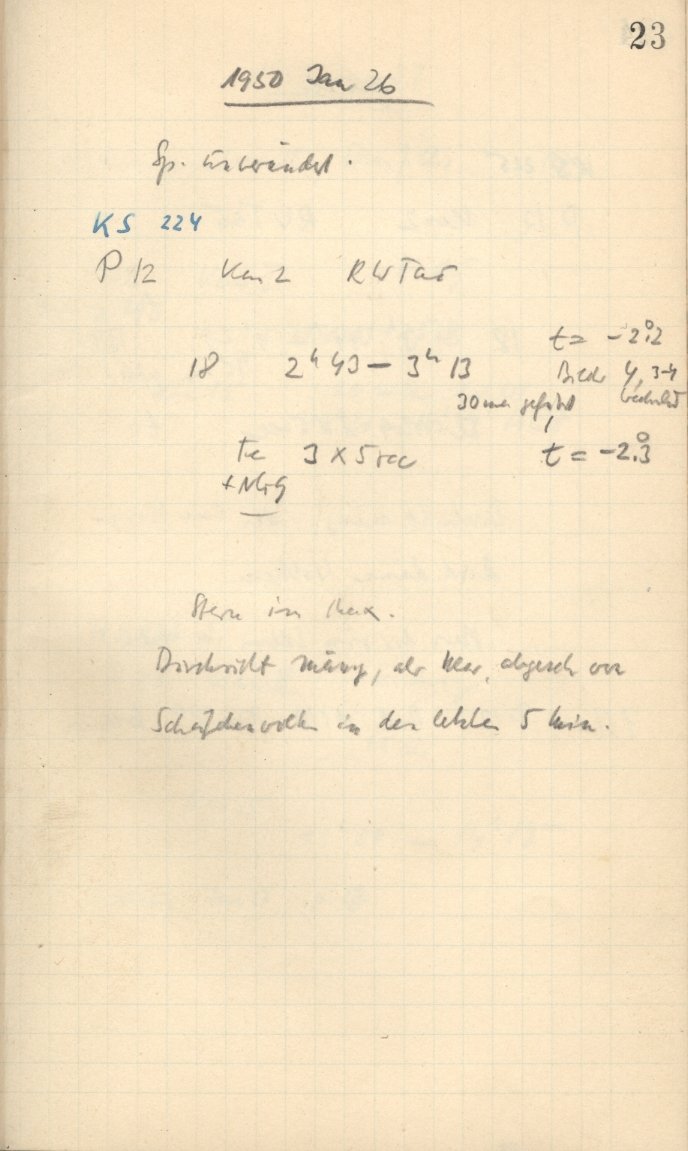 23
1950 Jan 26
Sp. unverändert.
KS 224
P 12 Kam 2 RW Tau
18 2h 43 – 3h 13 t = -2.°2
Bilder 4, 3-4
30 min geführt wechselnd
Fe 3 x 5 sec t = -2.°3
Stern im Max.
Durchsicht mässig, aber klar, abgeseh von
Schäfchenwolken in den letzten 5 Min.